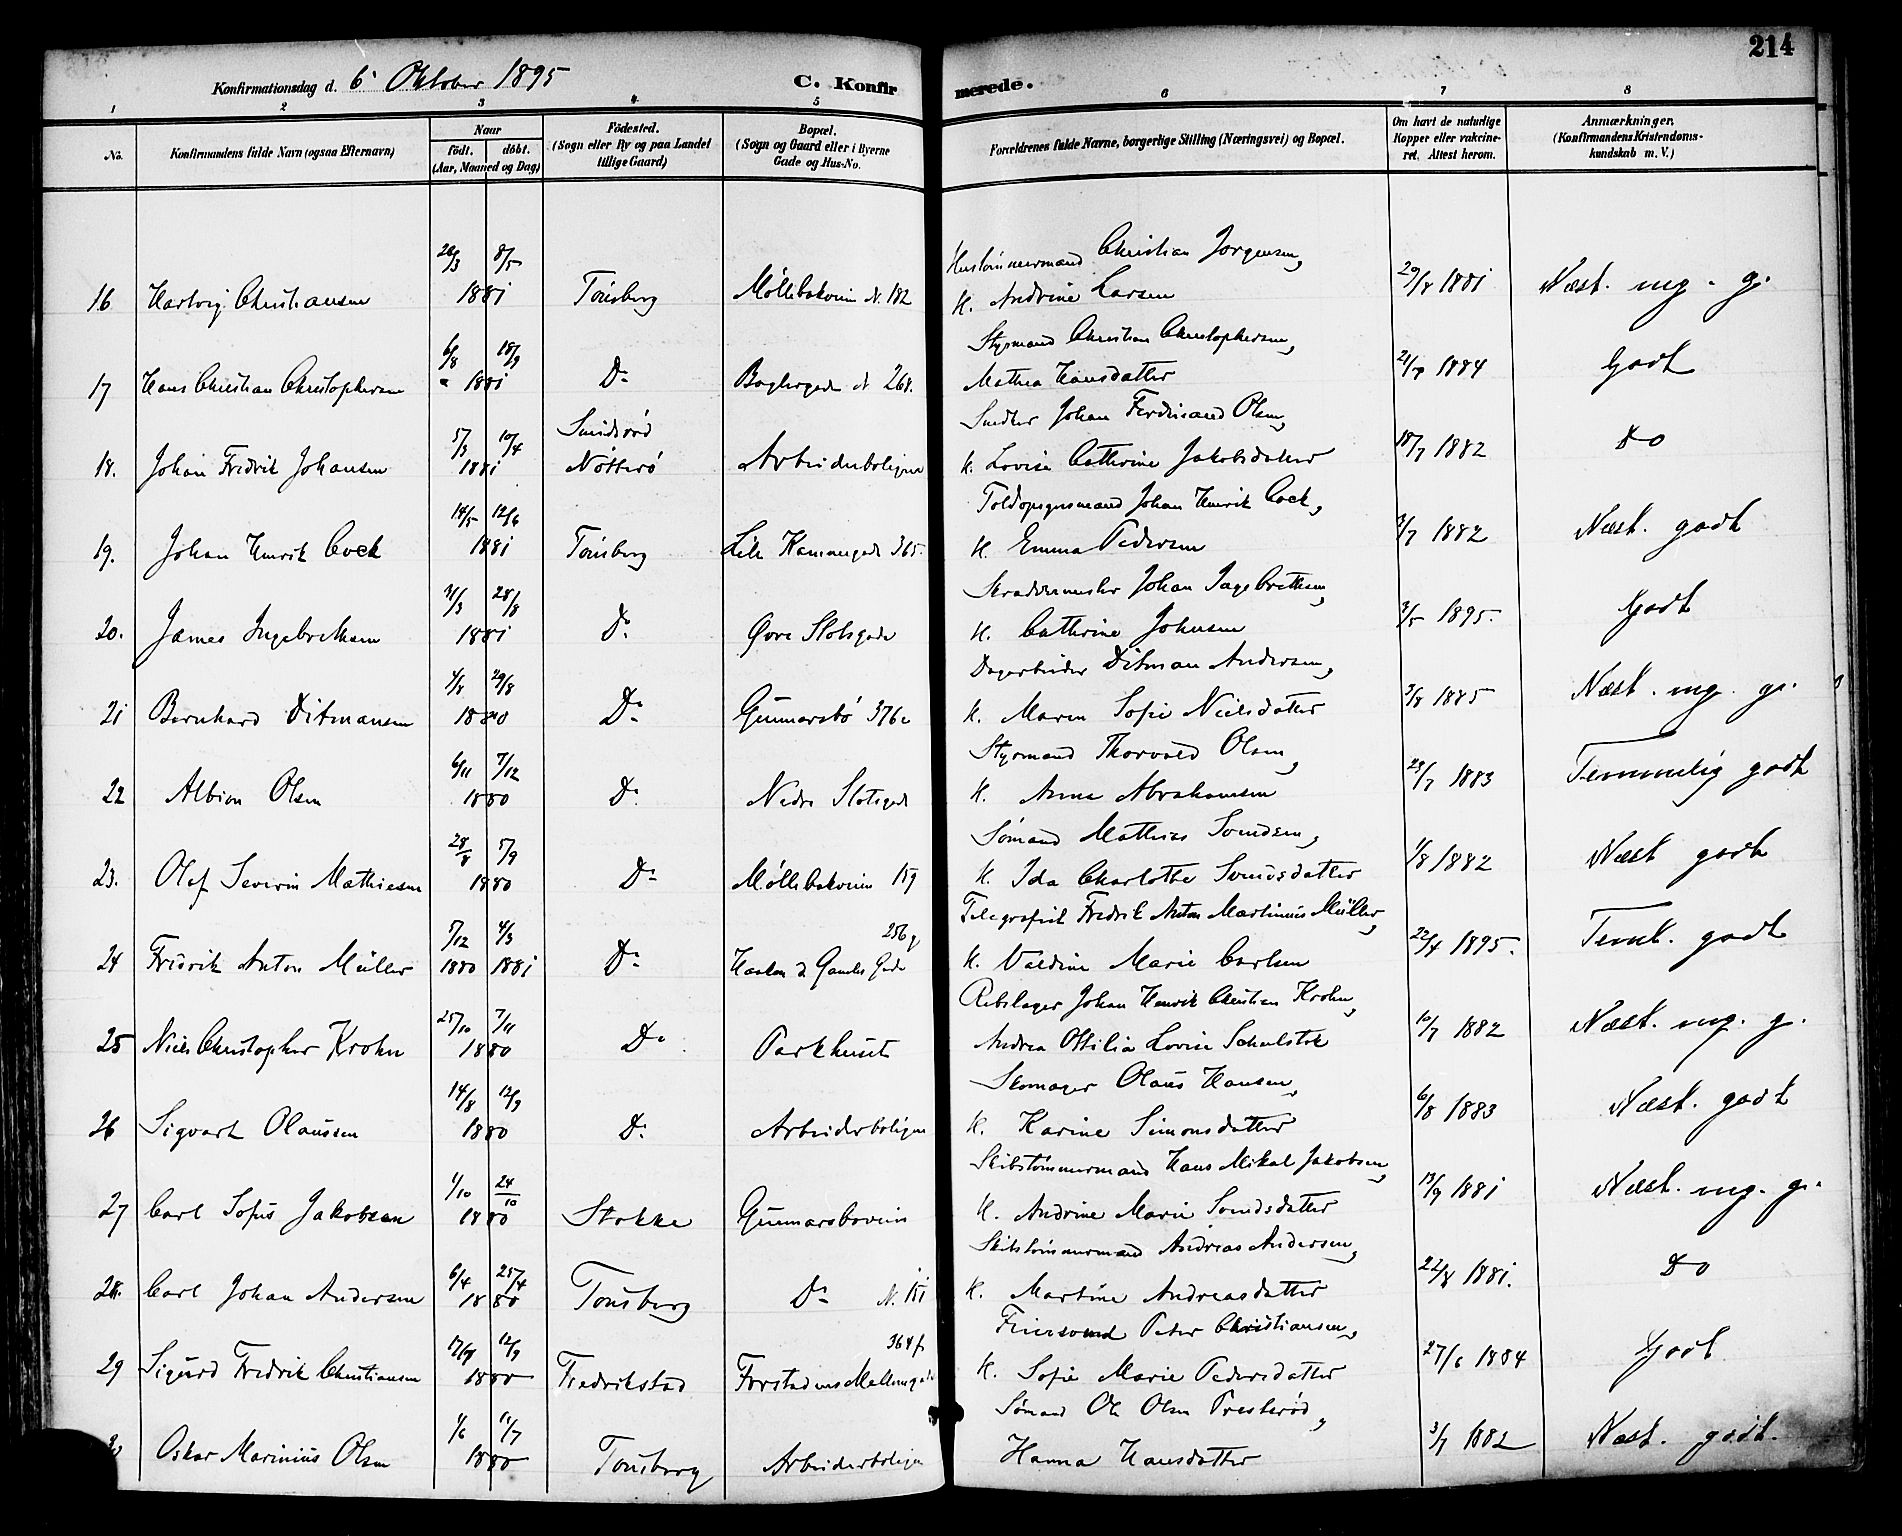 214
Konfirmationsdag d. 6 Oktober 1895 C. Konfirmerede.
1 2 3 4 5 6 7 8
No. Konfirmandens fulde Navn (ogsaa Efternavn) Naar födt. döbt. (Aar, Maaned og Dag) Födested. (Sogn eller By og paa Landet tillige Gaard) Bopæl. (Sogn og Gaard eller i Byerne Gade og Hus-No. Forældrenes fulde Navne, borgerlige Stilling (Næringsvei) og Bopæl. Om havt de naturlige Kopper eller vakcineret. Attest herom. Anmærkninger. (Konfirmandens Kristendomskundskab m. V.)
28/3 8/5 Hustömmermand Christian Jorgensen,
16 Hartvig Christiansen 1881 Tönsberg Möllebakveien N. 182 H. Andrine Larsen 29/8 1881 Næst. mg. g.
6/8 18/9 Styrmand Christian Christophersen,
17 Hans Christian Christophersen 1881 Do Baglergade N 268. Mathea Hansdatter 21/7 1884 Godt
5/3 10/4 Smidsröd Snedker Johan Ferdinand Olsen,
18. Johan Fredrik Johansen 1881 Nötterö Arbeiderboligen H. Lovise Cathrine Jakobsdatter 18/7 1882 Do
14/5 12/6 Toldopsynsmand Johan Henrik Cock,
19. Johan Henrik Cock 1881 Tönsberg Lille Kammegade 365. H. Emma Pedersen 3/7 1882 Næst. godt
31/3 28/8 Skræddermester Johan Ingebretsen,
20. James Ingebretsen 1881 Do Øvre Slotsgade H. Cathrine Johnsen 3/5 1895. Godt
4/8 29/8 Dagarbeider Ditman Andersen,
21 Bernhard Ditmansen 1880 Do Gunnarsbö 376c H. Maren Sofie Nielsdatter 3/8 1885 Næst. mg. g.
6/11 7/12 Styrmand Thorvald Olsen,
22 Albion Olsen 1880 Do Nedre Slotsgade H. Anna Abrahamsen 23/7 1883 Temmelig godt
28/8 5/9 Sömand Mathias Svendsen,
23. Olaf Severin Mathiesen 1880 Do Möllebakveien 159 H. Ida Charlotte Svendsdatter 1/8 1882 Næst godt
5/12 4/3 256g Telegrafist Fredrik Anton Martinius Müller,
24 Fredrik Anton Müller 1880 1881 Do Haakon d Gamles Gade H. Valdine Marie Carlsen 22/4 1895. Teml. godt
25/10 7/11 Rebslager Johan Henrik Christian Krohn,
25 Niels Christopher Krohn 1880 Do Parkhuset Andrea Ottilia Lovise Schulstok 10/7 1882 Næst. mg. g.
14/8 12/9 Skomager Olaus Hansen,
26 Sigvart Olaussen 1880 Do Arbeiderboligen H. Karine Simonsdatter 6/8 1883 Næst. godt
1/10 24/10 Skibstömmermand Hans Mikal Jakobsen,
27 Carl Sofus Jakobsen 1880 Stokke Gunnarsboveien H. Andrine Marie Svendsdatter 13/9 1881 Næst. mg. g.
6/4 25/4 Skibstömmermand Andreas Andersen,
28. Carl Johan Andersen 1880 Tönsberg Do N. 151 H. Martine Andreasdatter 22/8 1881. Do
17/7 12/9 364f Feiersvend Peter Christiansen,
29 Sigurd Fredrik Christiansen 1880 Fredrikstad Forstadens Mellemgade H. Sofie Marie Pedersdatter 27/6 1884 Godt
1/6 11/7 Sömand Ole Olsen Presteröd,
Oskar Marinius Olsen 1880 Tönsberg Arbeiderboligen Hanna Hansdatter 3/7 1882 Næst. godt.